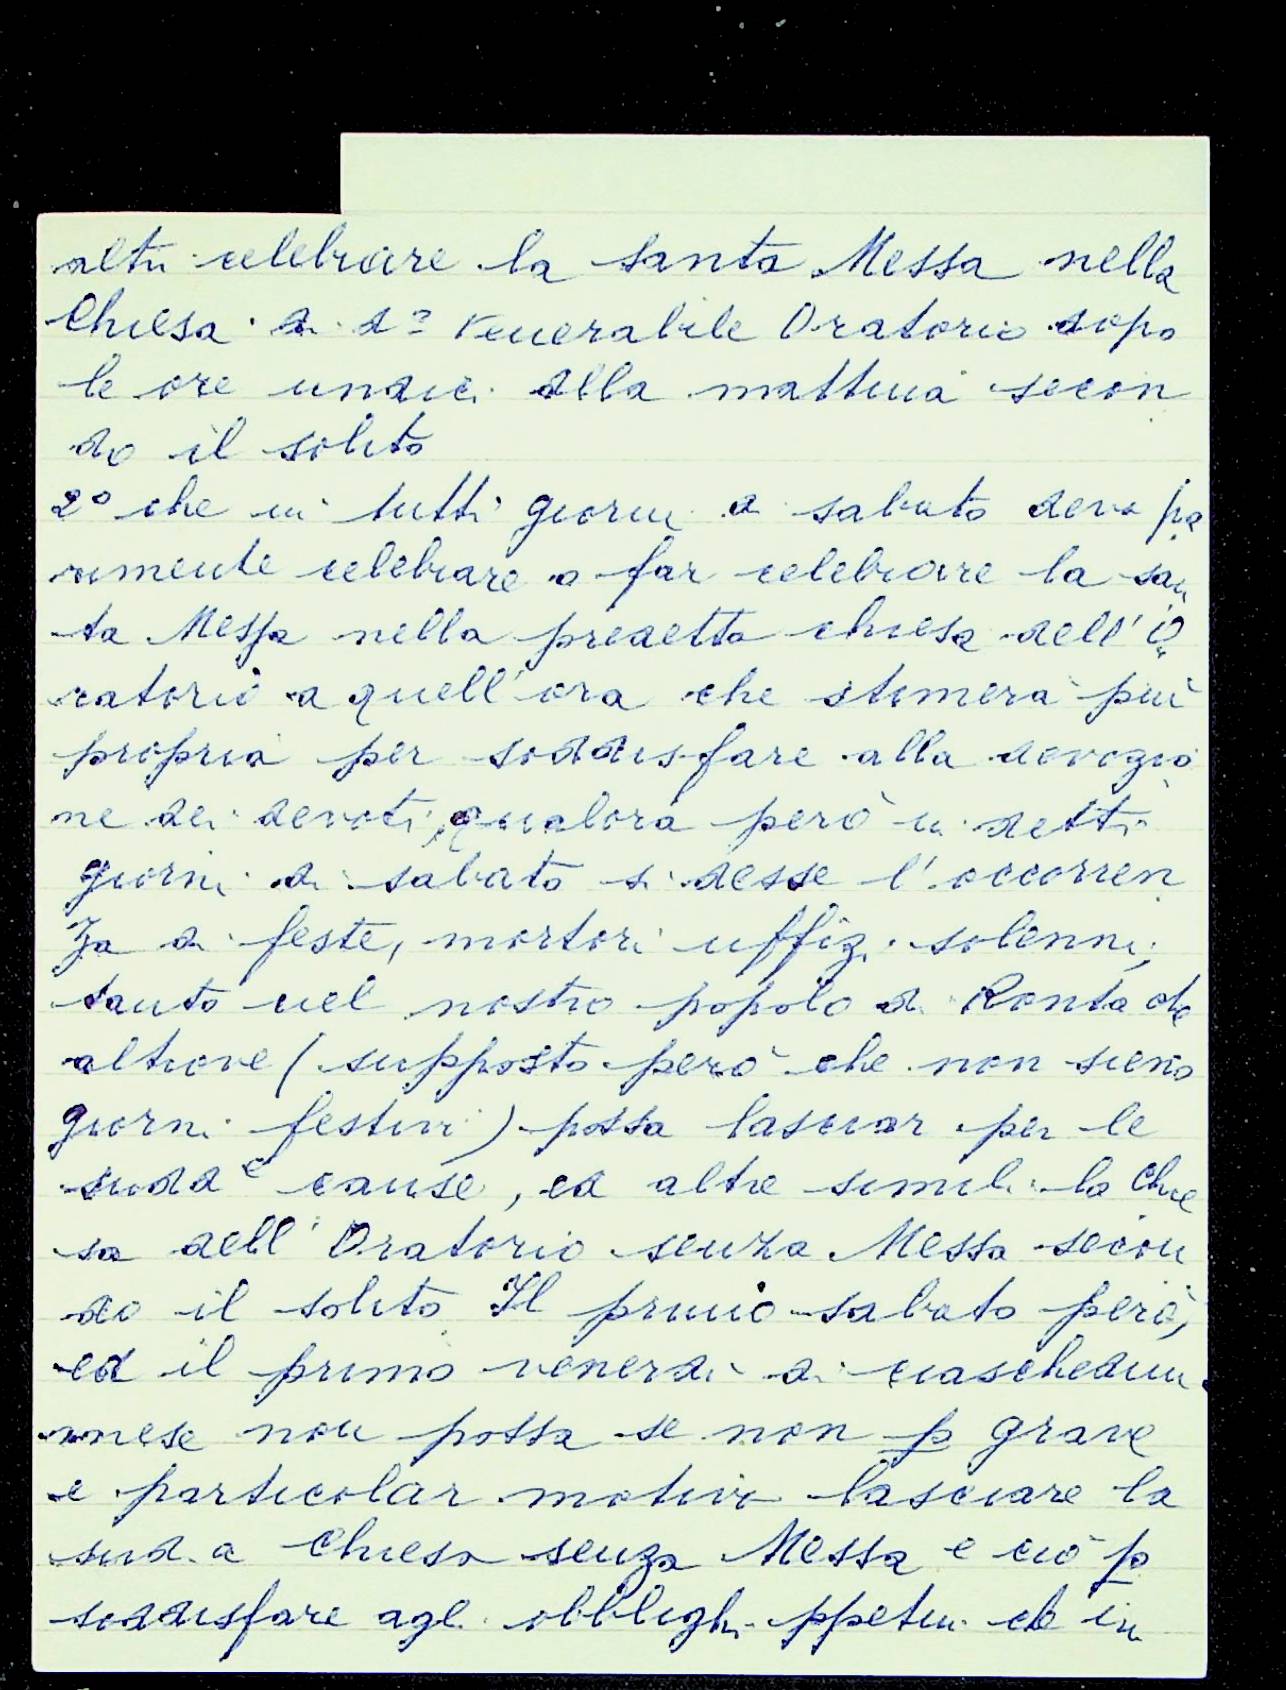 altri celebrare la santa Messa nella
Chiesa di d.º Venerabile Oratorio dopo
le ore undici della mattina secon
do il solito
2º che in tutti giorni di sabato deva pa
rimente celebrare o far celebrare la san
ta Messa nella predetta chiesa dell'O
ratorio a quell'ora che stimerà più
propria per soddisfare alla devozio
ne dei devoti, qualora però in detti
giorni di sabato si desse l'occorren
za di feste, mortori uffizi solenni,
tanto nel nostro popolo di Ronta che
altrove (supposto però che non sieno
giorni festivi) possa lasciar per le
sudd e cause, ed altre simili la Chie
sa dell'Oratorio senza Messa secon
do il solito Il primo sabato però,
ed il primo venerdi di ciaschedun
mese non possa se non p grave
e particolar motivo lasciare la
sud. a Chiesa senza Messa e ciò p
soddisfare agli obblighi ppetui che in